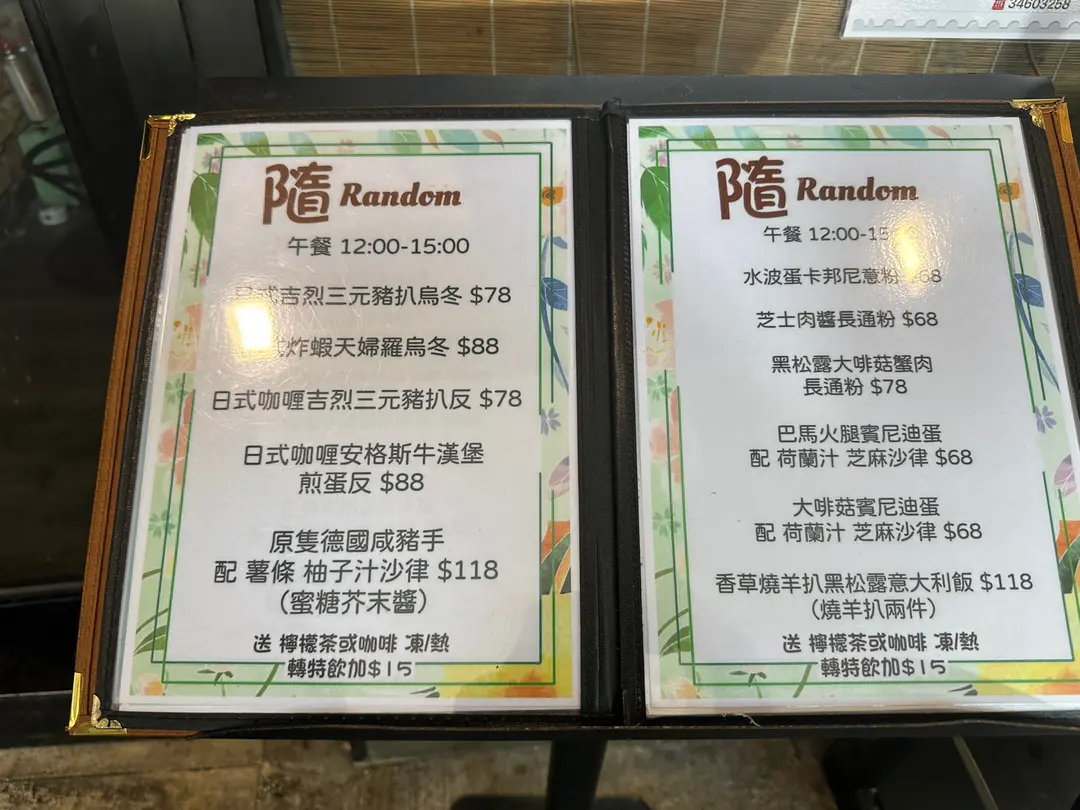 34603258
隨 Random
午餐 12:00-15:00
日式吉烈三元豬扒烏冬 $78
炸蝦天婦羅烏冬 $88
日式咖喱吉烈三元豬扒反 $78
日式咖喱安格斯牛漢堡
煎蛋反 $88
原隻德國咸豬手
配 薯條 柚子汁沙律 $118
(蜜糖芥末醬)
送 檸檬茶或咖啡 凍/熱
轉特飲加$15
隨 Random
午餐 12:00-15
水波蛋卡邦尼意粉 $68
芝士肉醬長通粉 $68
黑松露大啡菇蟹肉
長通粉 $78
巴馬火腿賓尼迪蛋
配 荷蘭汁 芝麻沙律 $68
大啡菇賓尼迪蛋
配 荷蘭汁 芝麻沙律 $68
香草燒羊扒黑松露意大利飯 $118
(燒羊扒兩件)
送 檸檬茶或咖啡 凍/熱
轉特飲加$15